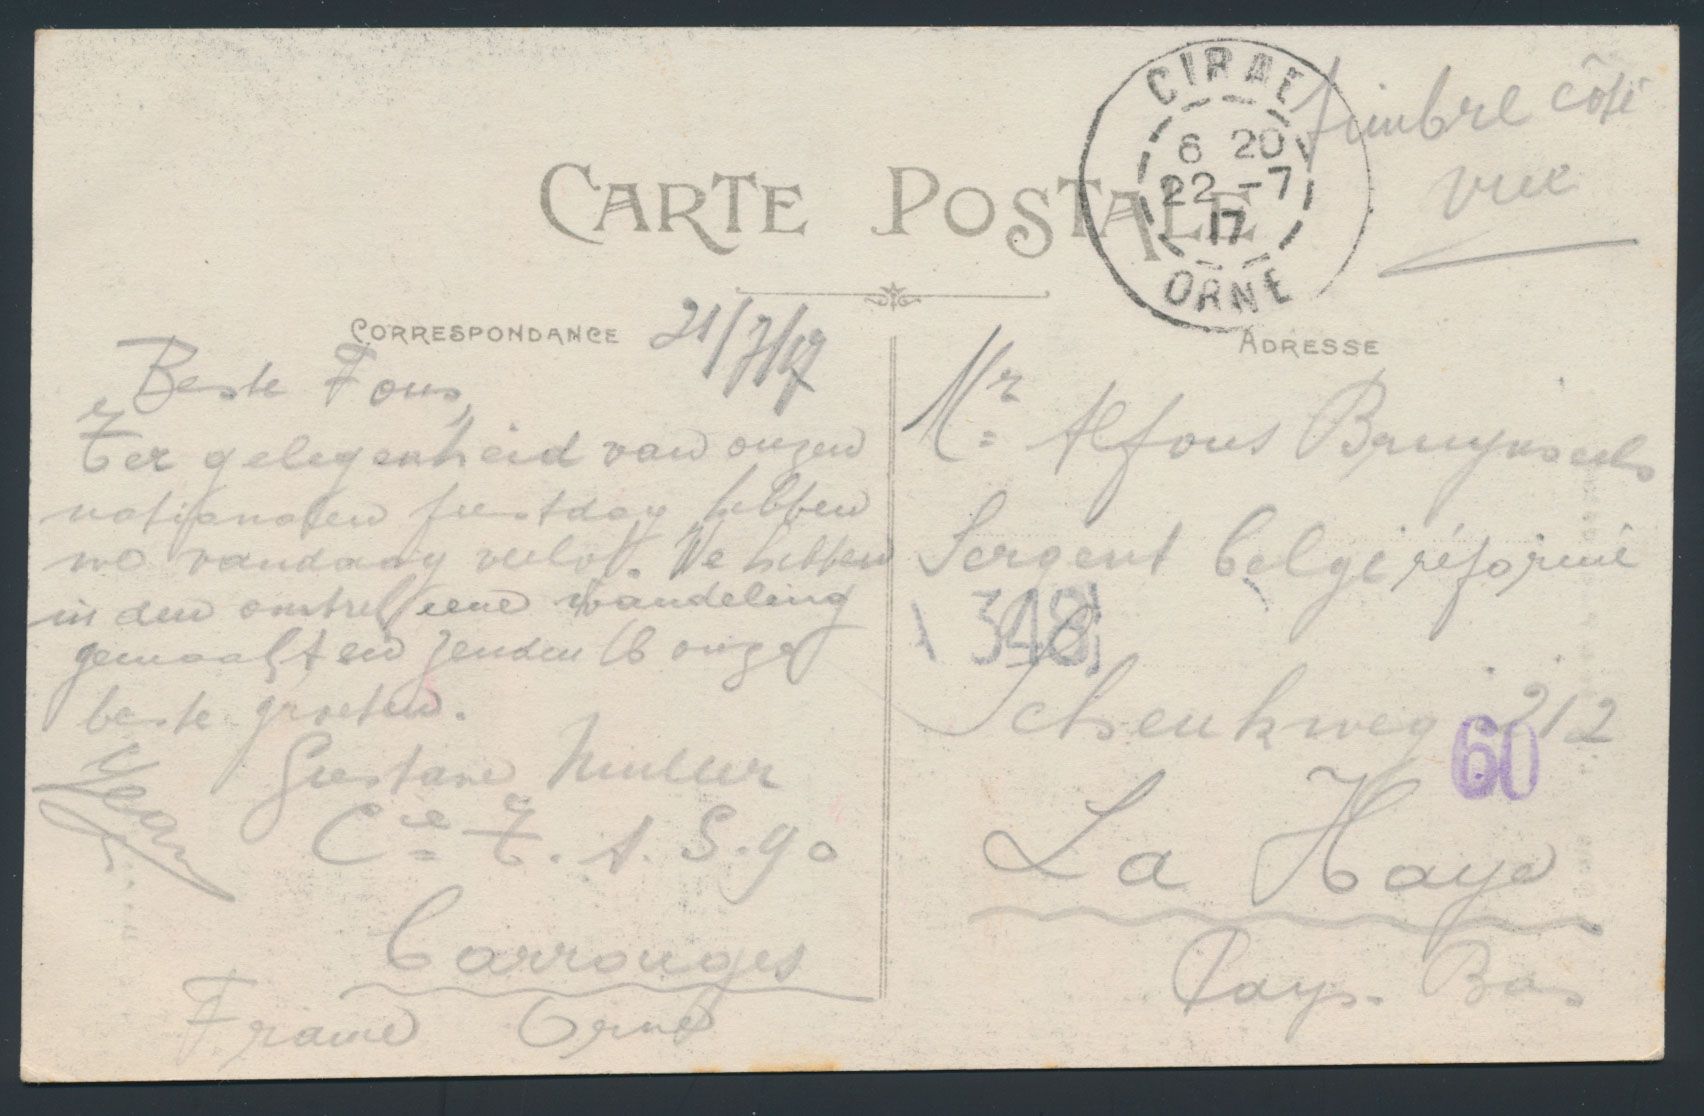 CARTE POSTALE
CIRAL
6 20
22 -7
17
ORNE
timbre côté
vue
CORRESPONDANCE
21/7/17
Beste Fons,
Ter gelegenheid van onzen
nationalen feestdag hebben
we vandaag verlof. We hebben
in den omtrek eene wandeling
gemaakt en zenden U onze
beste groeten.
Gustave
Cie T. A. S. 90
Carrouges
France Orne
Jean
ADRESSE
Mr Alfons
Sergent belge réformé
348
Schenkweg 212
60
La Haye
Pays-Bas